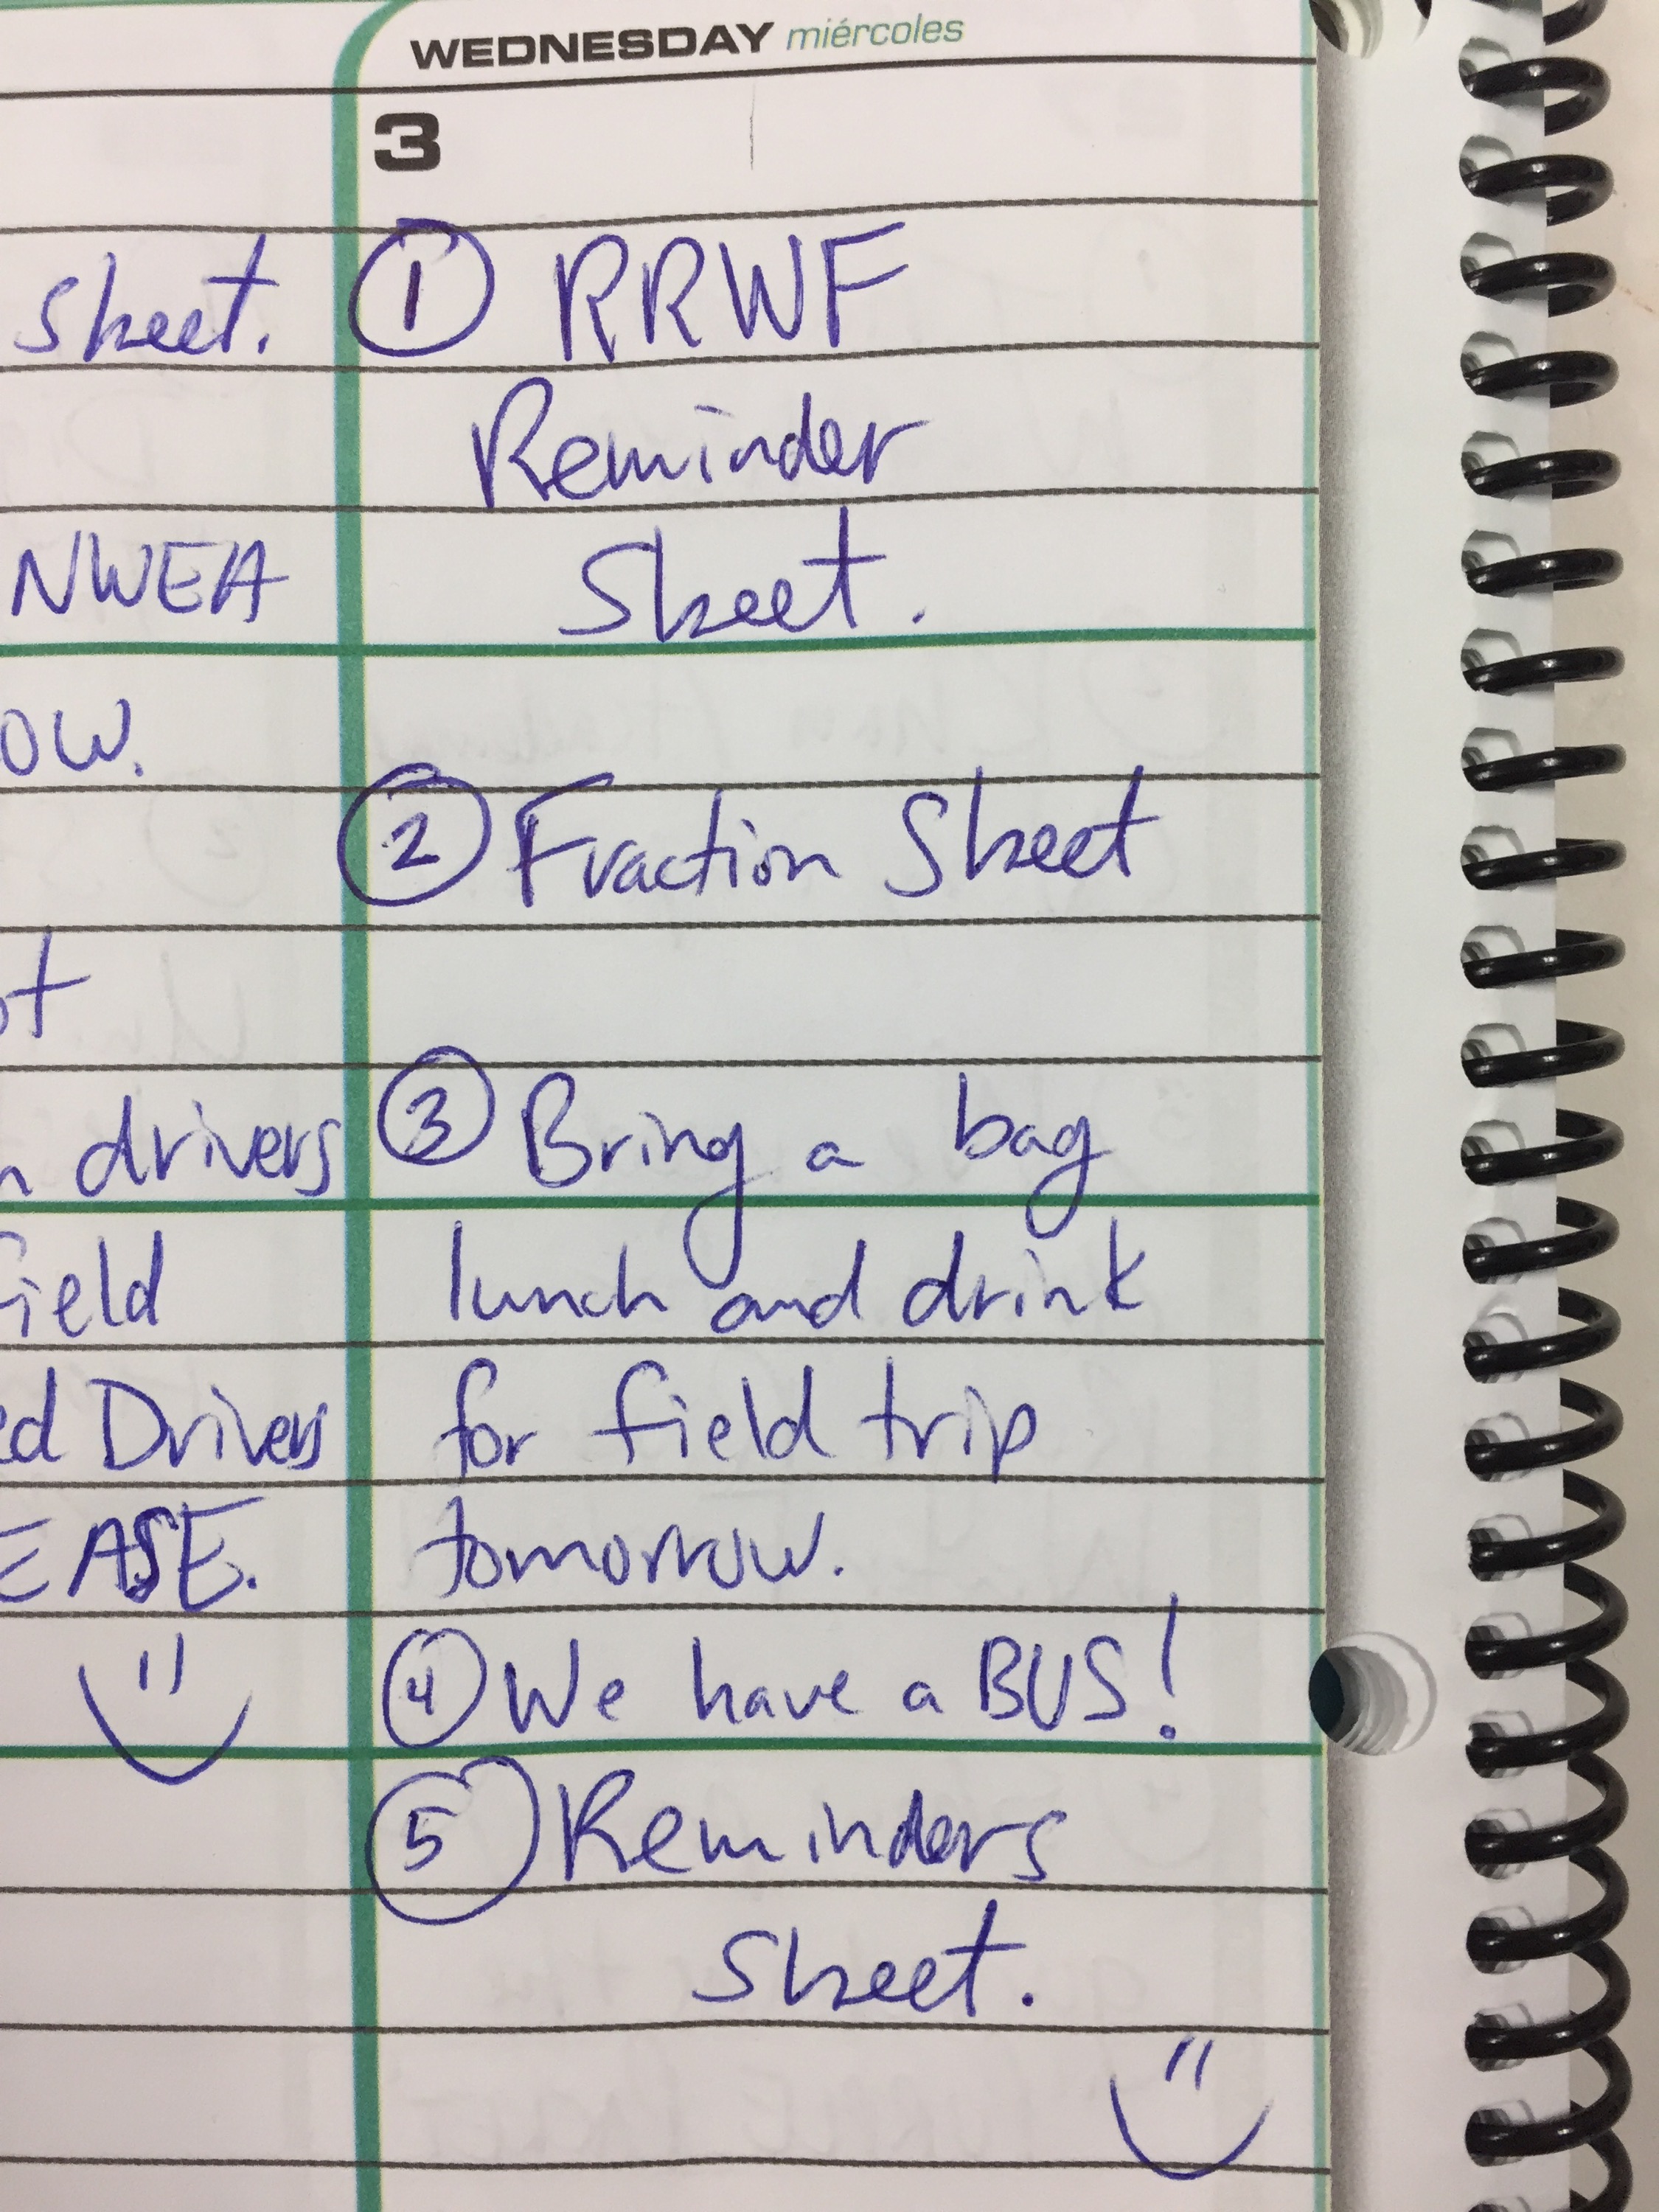 WEDNESDAY miércoles
3
sheet.
NWEA
ow.
ot
drivers
field
ed Drivers
EASE.
① RRWF
Reminder
Sheet.
② Fraction Sheet
③ Bring a bag
lunch and drink
for field trip
tomorrow.
④ We have a BUS!
⑤ Reminders
Sheet.